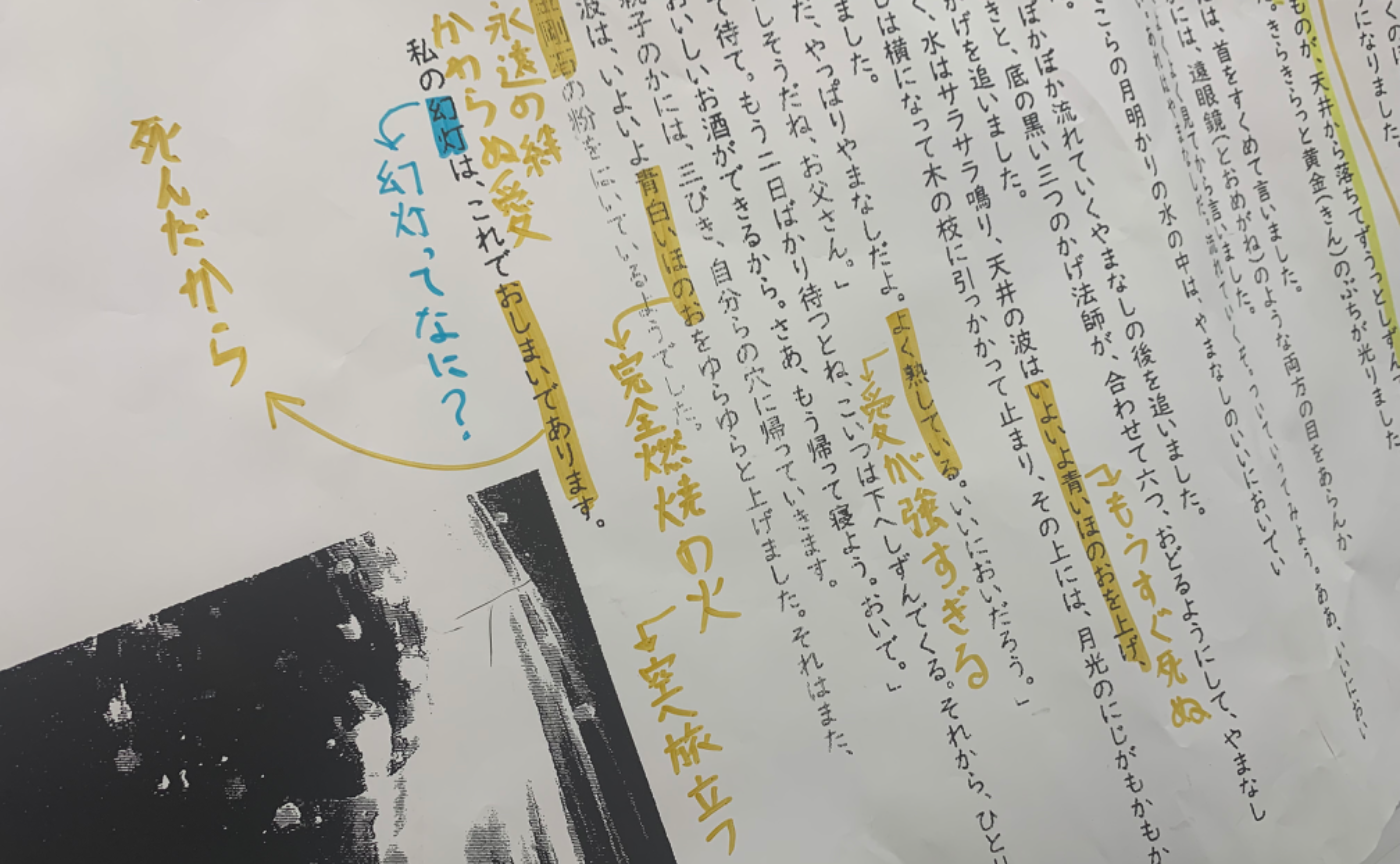 くのは
うになりました
ものが、天井から落ちてずうっとしずんで
きらきらっと黄金(きん)のぶちが光りました
は、首をすくめて言いました。
には、遠眼鏡(とおめがね)のような両方の目をあらんか
よく見てから言いました。
流れていくぞ。ついていってみよう。ああ、いいにおい
こらの月明かりの水の中は、やまなしのいいにおいでい
ぽかぽか流れていくやまなしの後を追いました。
きと、底の黒い三つのかげ法師が、合わせて六つ、おどるようにして、やまなし
かげを追いました。
く、水はサラサラ鳴り、天井の波はいよいよ青いほのおを上げ、
もうすぐ死ぬ
は横になって木の枝に引っかかって止まり、その上には、月光のにじがもかもか
ました。
だ、やっぱりやまなしだよ。よく熟している。いいにおいだろう。」
愛が強すぎる
しそうだね、お父さん。」
て待て。もう二日ばかり待つとね、こいつは下へしずんでくる。それから、ひとり
おいしいお酒ができるから。さあ、もう帰って寝よう。おいで。」
親子のかには、三びき、自分らの穴に帰っていきます。
波は、いよいよ青白いほのおをゆらゆらと上げました。それはまた、
完全燃焼の火
空へ旅立つ
金剛石の粉をはいているようでした。
永遠の絆
かわらぬ愛
私の幻灯は、これでおしまいであります。
幻灯ってなに?
死んだから